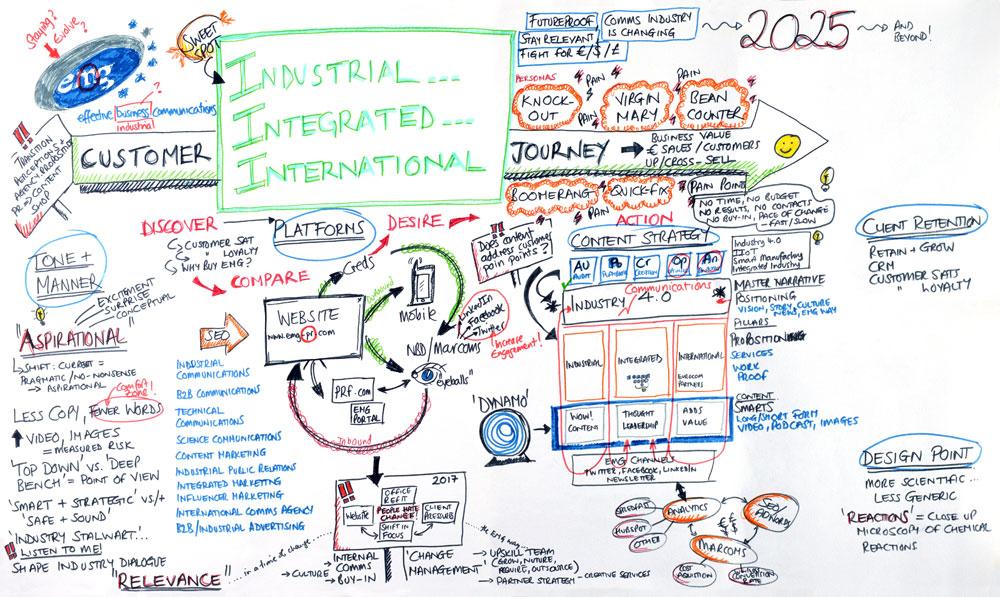 Staying?
Evolve?
emg
effective business communications
industrial
?
!!
TRANSITION
PERCEPTIONS +
AGENCY PROPOSITION
PR → CONTENT
SHOP
SWEET
SPOT
INDUSTRIAL ...
INTEGRATED ...
INTERNATIONAL
CUSTOMER
JOURNEY →
BUSINESS VALUE
€ SALES / CUSTOMERS
UP/CROSS-SELL
FUTUREPROOF
STAY RELEVANT
FIGHT FOR €/$/£
COMMS INDUSTRY
IS CHANGING
2025
→ AND
BEYOND!
PERSONAS
PAIN
PAIN
PAIN
KNOCK-
OUT
VIRGIN
MARY
BEAN
COUNTER
BOOMERANG
QUICK-FIX
PAIN
PAIN POINTS
NO TIME, NO BUDGET
NO RESULTS, NO CONTACTS
NO BUY-IN, PACE OF CHANGE
- FAST/SLOW
DISCOVER
PLATFORMS
DESIRE
ACTION
CUSTOMER SAT
" LOYALTY
WHY BUY EMG?
COMPARE
TONE +
MANNER
EXCITEMENT
SURPRISE
CONCEPTUAL
"ASPIRATIONAL"
SHIFT: CURRENT =
PRAGMATIC / NO-NONSENSE
→ ASPIRATIONAL
Comfort
zone!
LESS COPY, FEWER WORDS
↑ VIDEO, IMAGES
= MEASURED RISK
'TOP DOWN' VS. 'DEEP
BENCH' = POINT OF VIEW
'SMART + STRATEGIC' VS/+
'SAFE + SOUND'
'INDUSTRY STALWART...
!! LISTEN TO ME!
SHAPE INDUSTRY DIALOGUE
"RELEVANCE"
... in a time of change
SEO
INDUSTRIAL
COMMUNICATIONS
B2B COMMUNICATION
TECHNICAL
COMMUNICATIONS
SCIENCE COMMUNICATIONS
CONTENT MARKETING
INDUSTRIAL PUBLIC RELATIONS
INTEGRATED MARKETING
INFLUENCER MARKETING
INTERNATIONAL COMMS AGENCY
B2B/INDUSTRIAL ADVERTISING
Creds
Outbound
mobile
WEBSITE
www.emg-pr.com
LinkedIn
Facebook
Twitter
Increase
Engagement!
NBD/Marcoms
"eyeballs"
PRF.com
EMG
PORTAL
Inbound
!!
Does content
address customer
pain points?
CONTENT STRATEGY
AU
AUDIT
Pb
Cr
Op
An
Communications
INDUSTRY 4.0
INDUSTRIAL
INTEGRATED
INTERNATIONAL
EUROCOM
PARTNERS
WOW!
CONTENT
THOUGHT
LEADERSHIP
ADDS
VALUE
'DYNAMO'
EMG CHANNELS
TWITTER, FACEBOOK, LINKEDIN
NEWSLETTER
Industry 4.0
IIOT
Smart Manufacturing
Integrated Industry
MASTER NARRATIVE
POSITIONING
VISION, STORY, CULTURE
NEWS, EMG WAY
PILLARS
PROPOSITION
SERVICES
WORK
PROOF
CONTENT
SMARTS
LONG/SHORT FORM
VIDEO, PODCAST, IMAGES
CLIENT RETENTION
RETAIN + GROW
CRM
CUSTOMER SATS
" LOYALTY
DESIGN POINT
MORE SCIENTIFIC...
LESS GENERIC
'REACTIONS' = CLOSE UP
MICROSCOPY OF CHEMICAL
REACTIONS
!!
2017
OFFICE
REFIT
Website
PEOPLE HATE
CHANGE!
SHIFT IN
FOCUS
→ CULTURE
INTERNAL
COMMS
BUY-IN
'CHANGE
MANAGEMENT'
the EMG way
→ UPSKILL TEAM
(GROW, NUTURE,
ACQUIRE, OUTSOURCE)
→ PARTNER STRATEGY - CREATIVE SERVICES
ANALYTICS
HUBSPOT
OTHER
€ $
€ £
SEO/
ADWORDS
MARCOMS